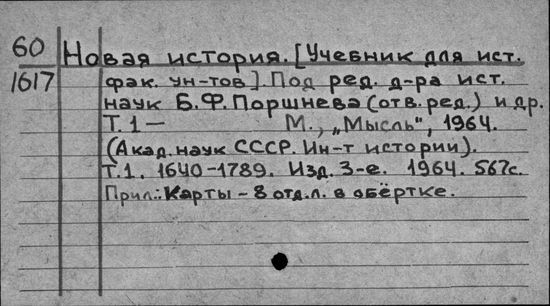 60
1617
Новая история. [Учебник для ист.
фак. ун-тов]. Под ред. д-ра ист.
наук Б.Ф. Поршнева (отв. ред.) и др.
Т.1 — М., „Мысль", 1964.
(Акад. наук СССР. Ин-т истории).
Т.1. 1640-1789. Изд. 3-е. 1964. 567с.
Прил.: Карты - 8 отд. л. в обёртке.